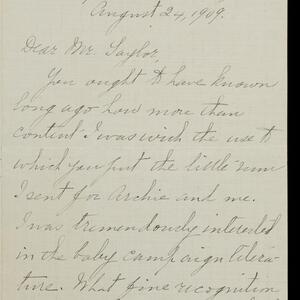 August 24, 1909.
Dear Mr. Taylor,
You ought to have known
long ago how more than
content I was with the use to
which you put the little sum
I sent for Archie and me.
I was tremendously interested
in the baby campaign litera-
ture. What fine recognition